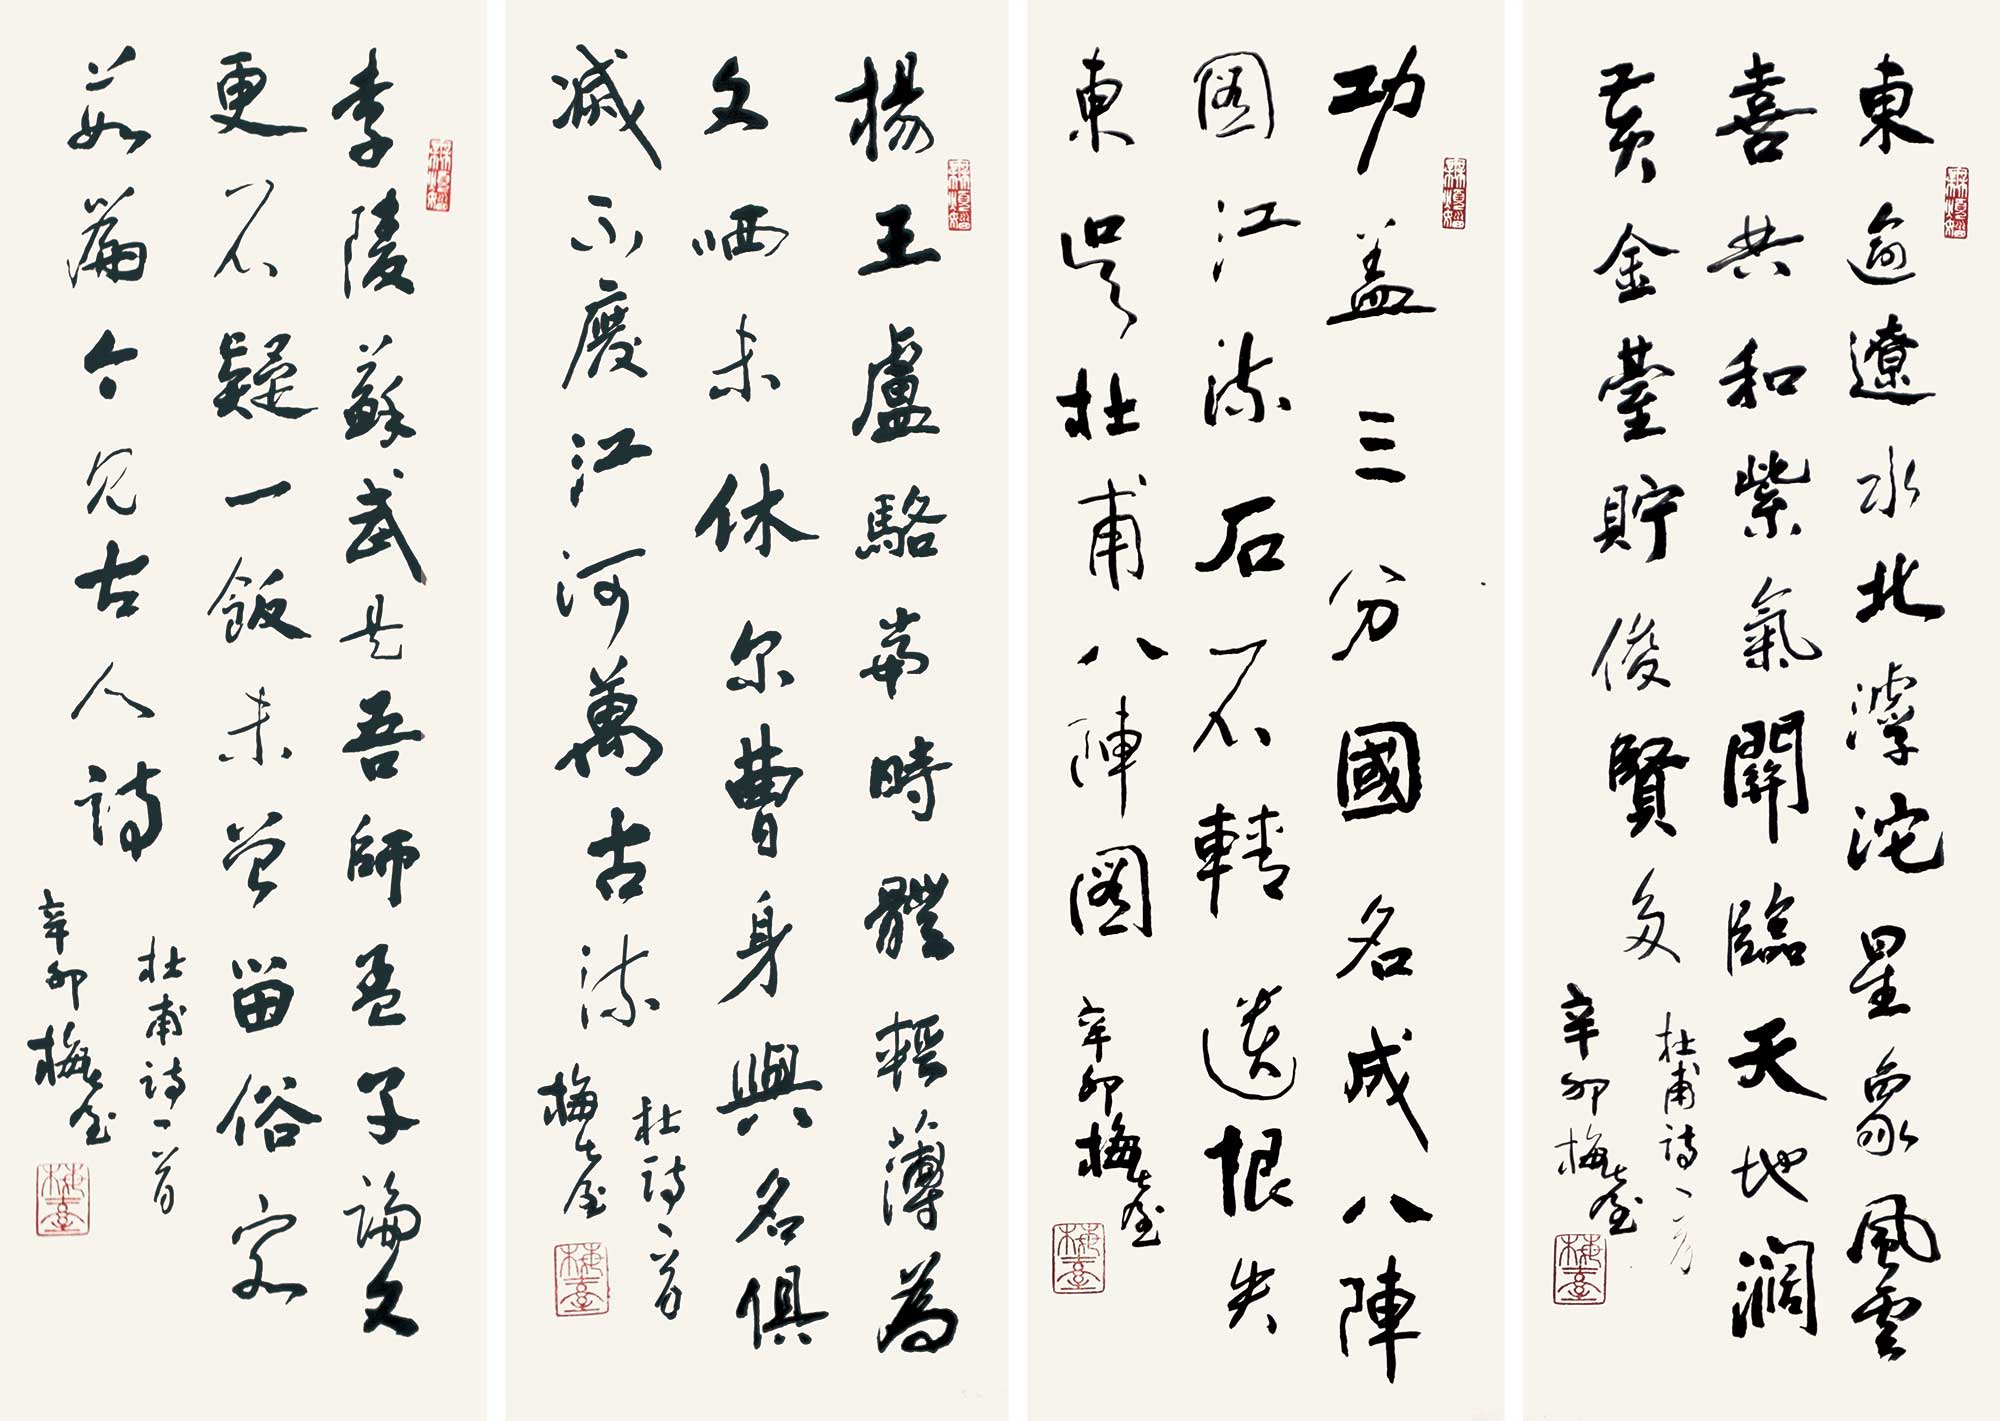 東逾遼水北滹沱星象風雲
喜共和紫氣關臨天地濶
黃金臺貯俊賢多
杜甫詩一首
辛卯梅
功盖三分國名成八陣
图江流石不轉遺恨失
東吳杜甫八陣图
辛卯梅
楊王盧駱當時體輕薄為
文哂未休尔曹身與名俱
滅不廢江河萬古流
杜詩一首
梅
李陵蘇武是吾師孟子論文
更不疑一飯未曾留俗客
數篇今見古人詩
杜甫詩一首
辛卯梅